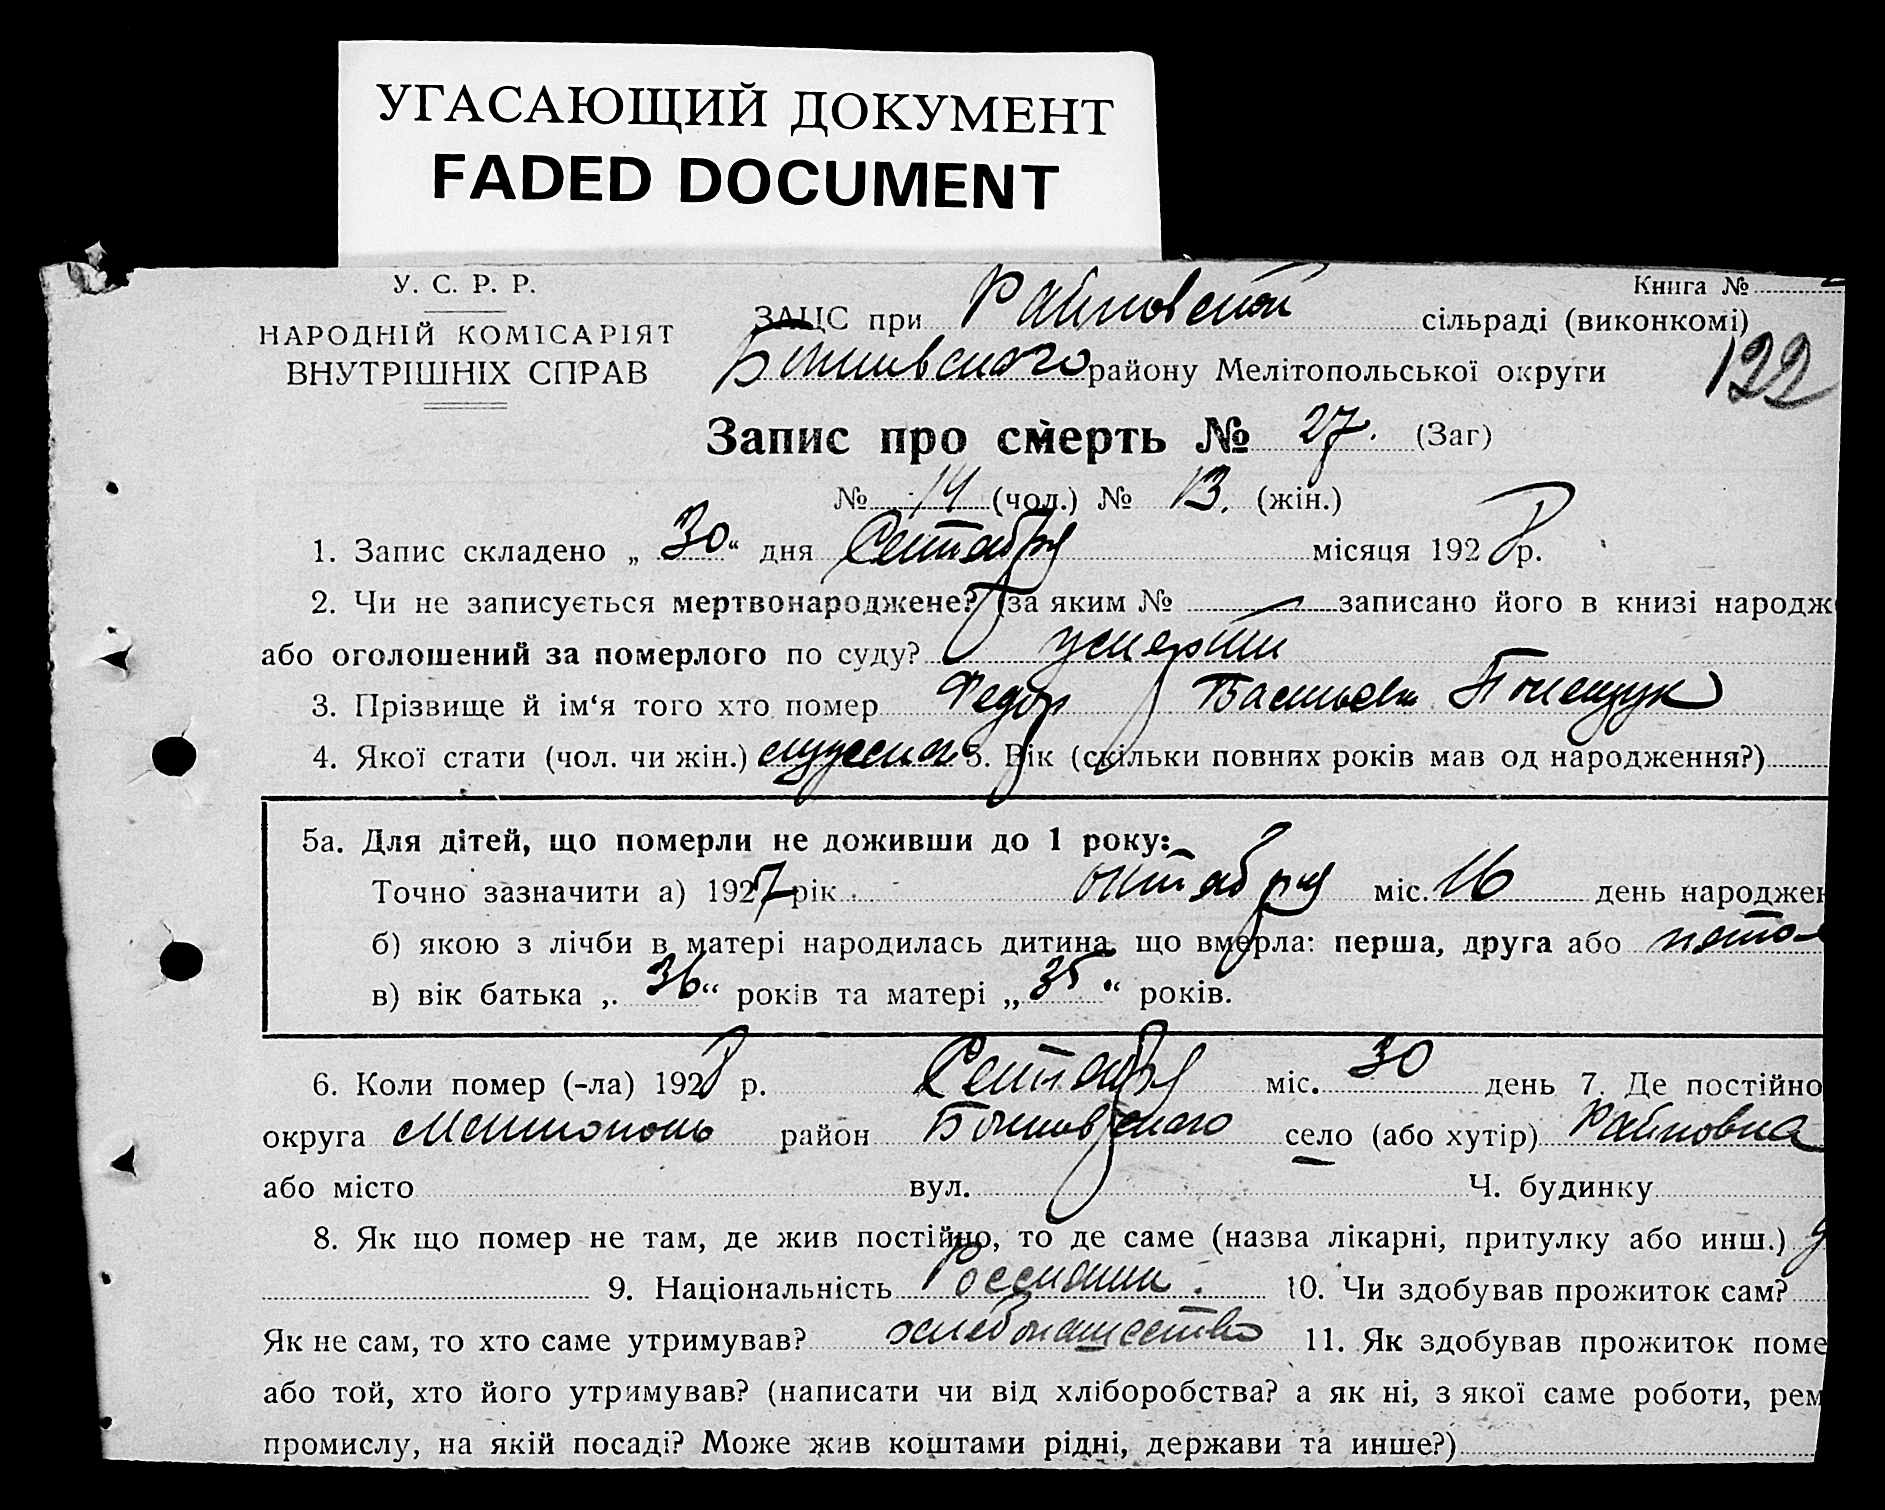 УГАСАЮЩИЙ ДОКУМЕНТ
FADED DOCUMENT
У. С. Р. Р.
НАРОДНІЙ КОМІСАРІЯТ
ВНУТРІШНІХ СПРАВ
Книга №
ЗАЦС при Райновской сільраді (виконкомі)
району Мелітопольської округи
122
Запис про смерть № 27. (Заг)
№ 14 (чол.) № 13. (жін.)
1. Запис складено „ 30 “ дня Сентября місяця 1928 р.
2. Чи не записується мертвонароджене? (за яким № записано його в книзі народж
або оголошений за померлого по суду? умерший
3. Прізвище й ім‘я того хто помер Федор Васильев Полещук
4. Якої стати (чол. чи жін.) мужска 5. Вік (скільки повних років мав од народження?)
5а. Для дітей, що померли не доживши до 1 року:
Точно зазначити а) 1927 рік октября міс. 16 день народжен
б) якою з лічби в матері народилась дитина, що вмерла: перша, друга або пятая
в) вік батька „ 36 “ років та матері „ 35 “ років.
6. Коли помер (-ла) 1928 р. Сентября міс. 30 день 7. Де постійно
округа Мелитополь район село (або хутір) Райновка
або місто вул. Ч. будинку
8. Як що помер не там, де жив постійно, то де саме (назва лікарні, притулку або инш.)
9. Національність 10. Чи здобував прожиток сам?
Як не сам, то хто саме утримував? хлебопашество 11. Як здобував прожиток поме
або той, хто його утримував? (написати чи від хліборобства? а як ні, з якої саме роботи, рем
промислу, на якій посаді? Може жив коштами рідні, держави та инше?)